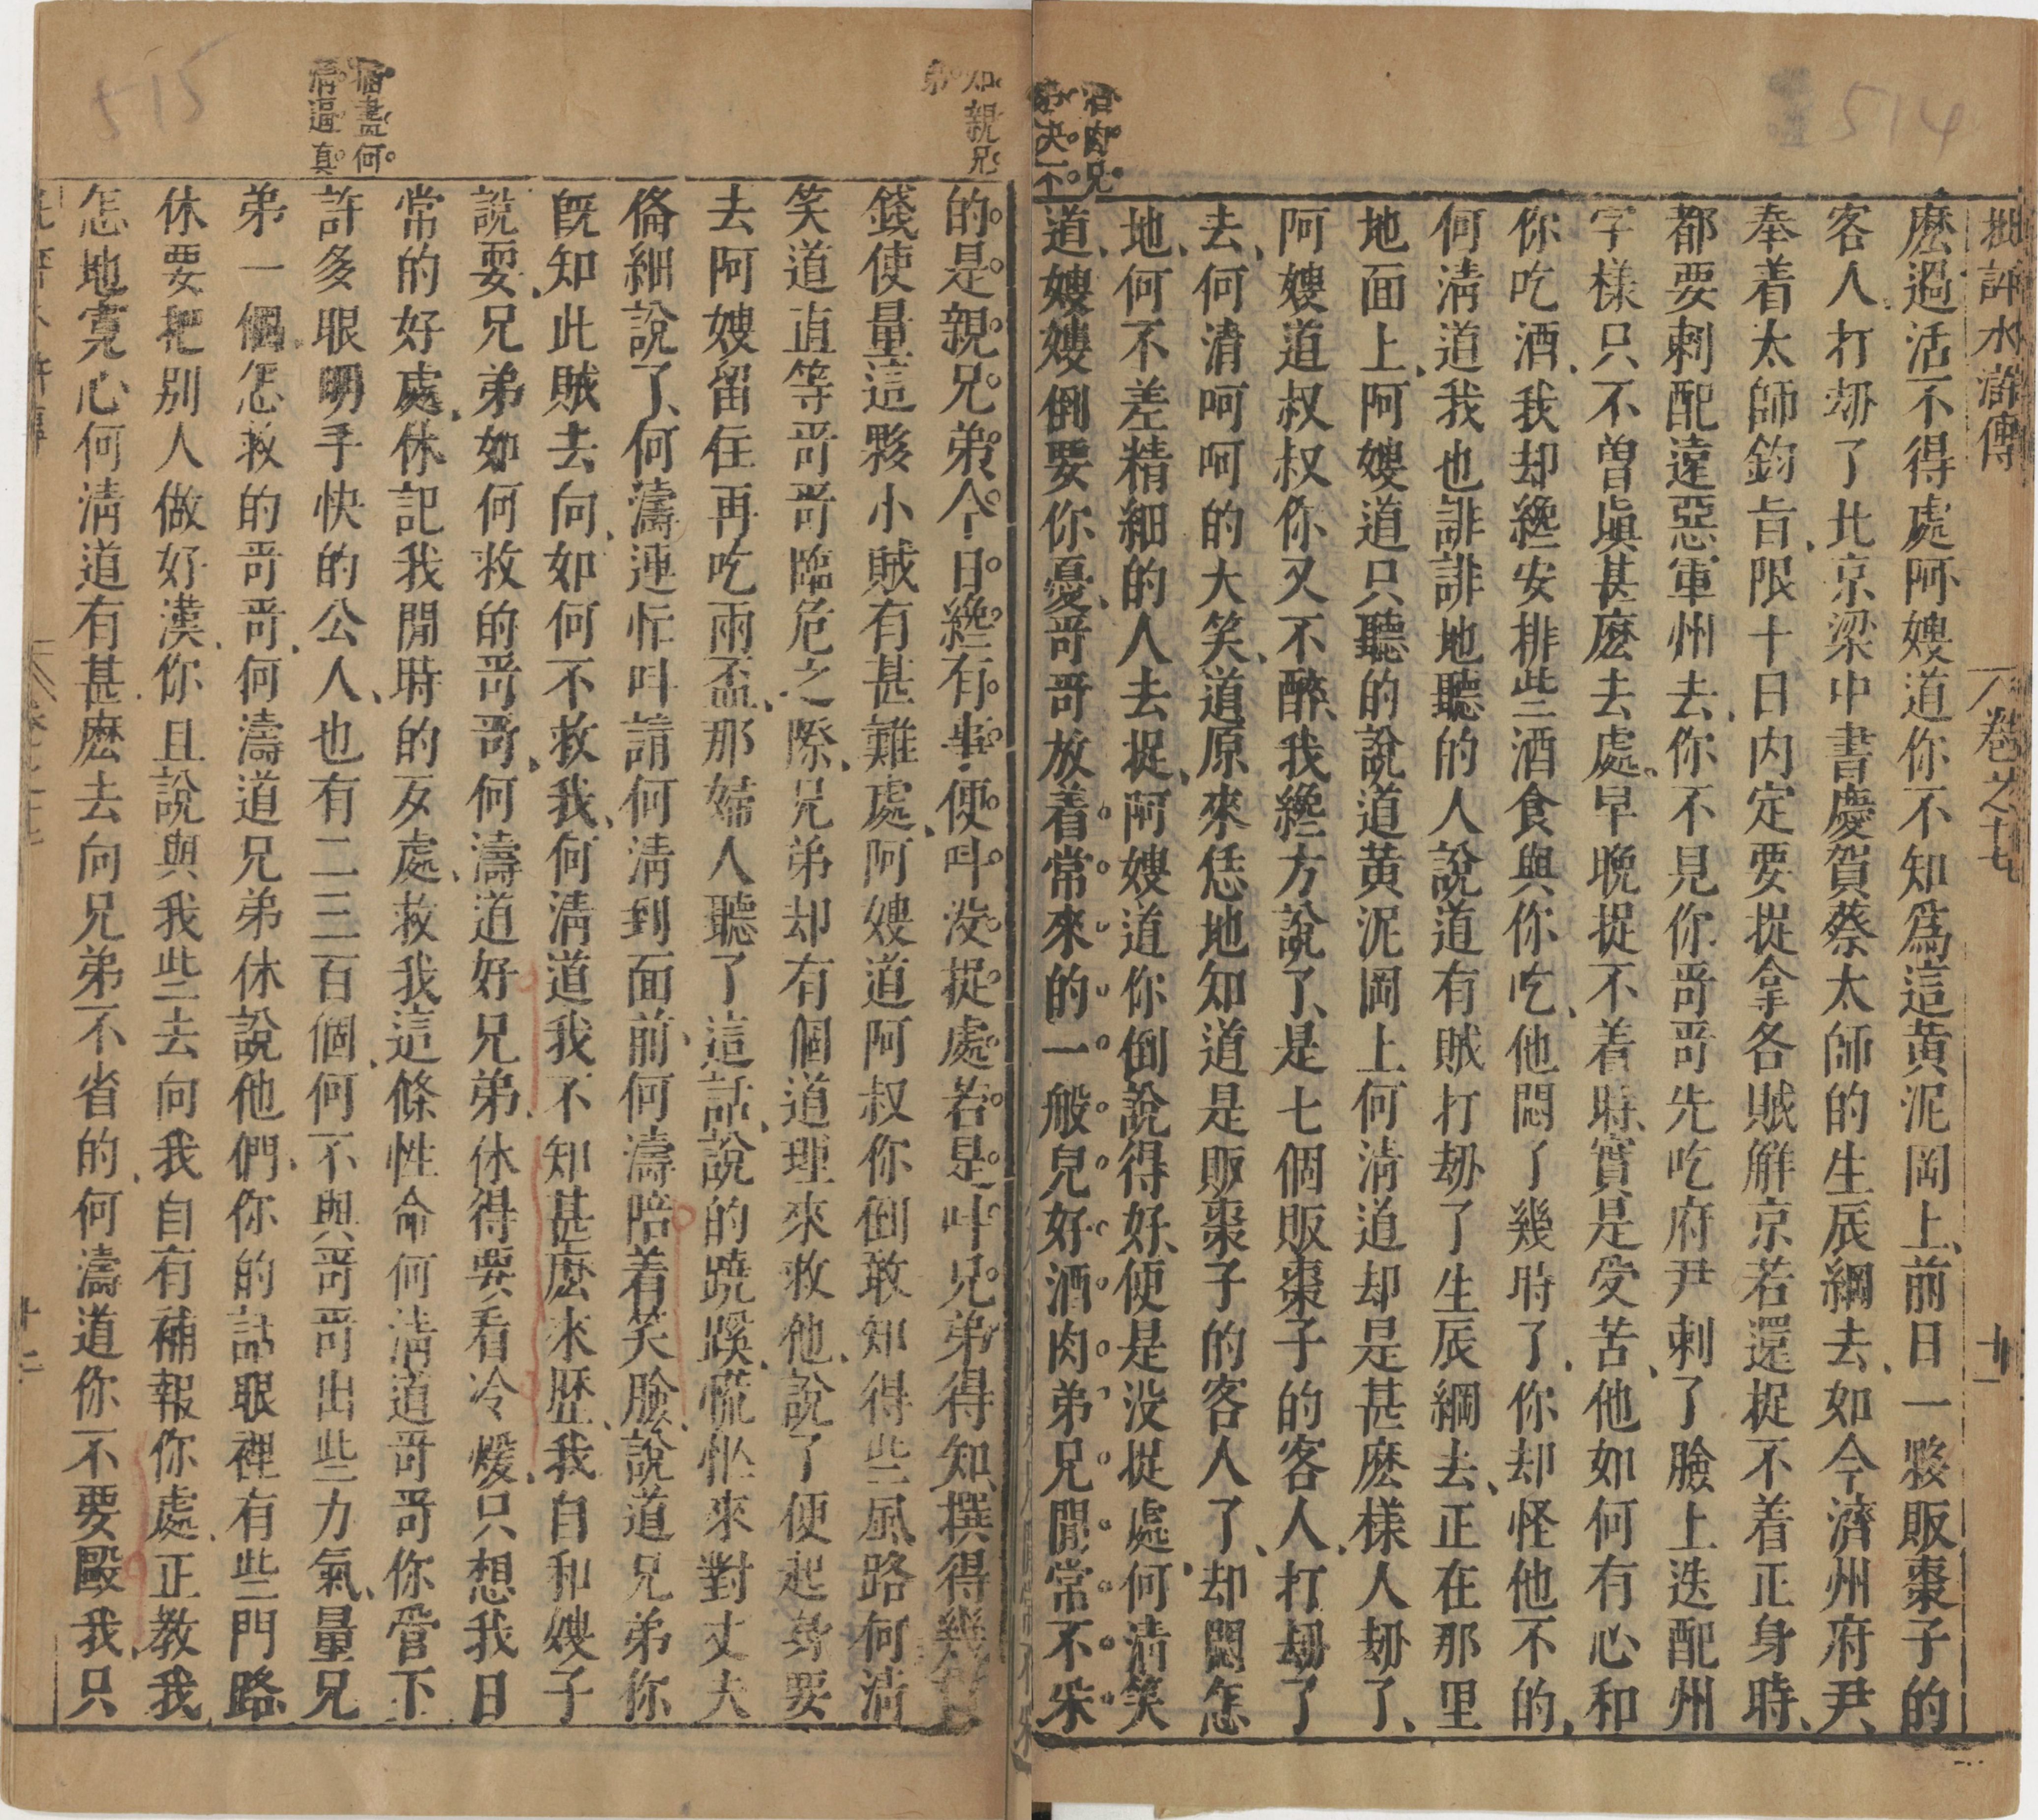 批評水滸傳 卷之十七 十一
麽過活不得處阿嫂道你不知爲這黃泥岡上前日一夥販棗子的
客人打刼了北京梁中書慶賀蔡太師的生辰綱去如今濟州府尹
奉着太師鈞旨限十日內定要捉拿各賊解京若還捉不着正身時
都要刺配遠惡軍州去你不見你哥哥先吃府尹刺了臉上迭配州
字樣只不曾塡甚麽去處早晚捉不着時實是受苦他如何有心和
你吃酒我却纔安排些酒食與你吃他悶了幾時了你却怪他不的
何淸道我也誹誹地聽的人說道有賊打刼了生辰綱去正在那里
地面上阿嫂道只聽的說道黃泥岡上何淸道却是甚麽樣人刼了
阿嫂道叔叔你又不醉我纔方說了是七個販棗子的客人打刼了
去何淸呵呵的大笑道原來恁地知道是販棗子的客人了却悶怎
地何不差精細的人去捉阿嫂道你倒說得好便是没捉處何淸笑
道嫂嫂倒要你憂哥哥放着常來的一般兒好酒肉弟兄閒常不采
酒肉兄
弟决不
如親兄
弟
的是親兄弟今日纔有事便叫没捉處若是叫兄弟得知撰得幾貫
錢使量這夥小賊有甚難處阿嫂道阿叔你倒敢知得些風路何淸
笑道直等哥哥臨危之際兄弟却有個道理來救他說了便起身要
去阿嫂留住再吃兩盃那婦人聽了這話說的蹺蹊慌忙來對丈夫
俻細說了何濤連忙叫請何淸到面前何濤陪着笑臉說道兄弟你
旣知此賊去向如何不救我何淸道我不知甚麽來歷我自和嫂子
說耍兄弟如何救的哥哥何濤道好兄弟休得要看冷煖只想我日
常的好處休記我閒時的歹處救我這條性命何淸道哥哥你管下
許多眼明手快的公人也有二三百個何不與哥哥出些力氣量兄
弟一個怎救的哥哥何濤道兄弟休說他們你的話眼裡有些門路
休要把别人做好漢你且說與我些去向我自有補報你處正教我
怎地寬心何淸道有甚麽去向兄弟不省的何濤道你不要毆我只
描畫何
淸逼真
十二
514
515